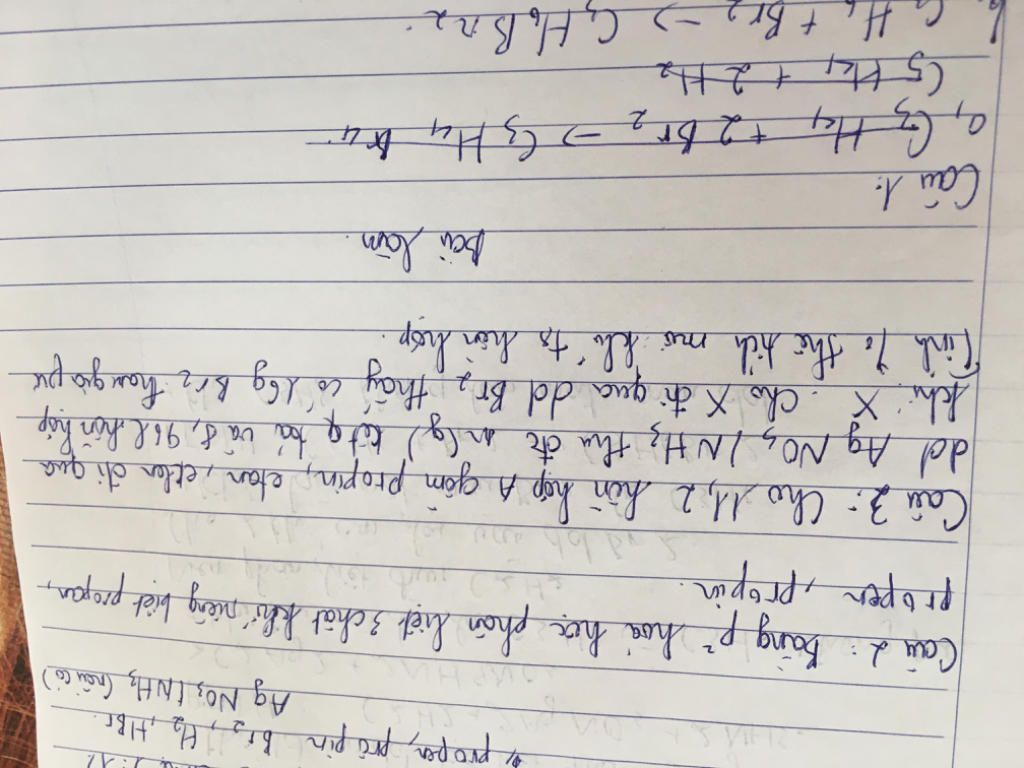 b, propen, propin Br2, H2, HBr.
AgNO3/NH3 (nếu có)
Câu 2: Bằng p² hóa học phân biệt 3 chất khí riêng biệt propan,
propen, propin.
Câu 3: Cho 11,2 hỗn hợp A gồm propin, etan, etlen đi qua
dd AgNO3/NH3 thu đc m(g) kết tủa và 8,96l hỗn hợp
khí X. Cho X đi qua dd Br2 thấy có 16g Br2 tham gia pư
Tính % thể tích mỗi khí ts hỗn hợp.
Bài làm.
Câu 1:
a, C3H4 + 2Br2 → C3H4Br4
C3H4 + 2H2
H6 + Br2 → C3H6Br2.